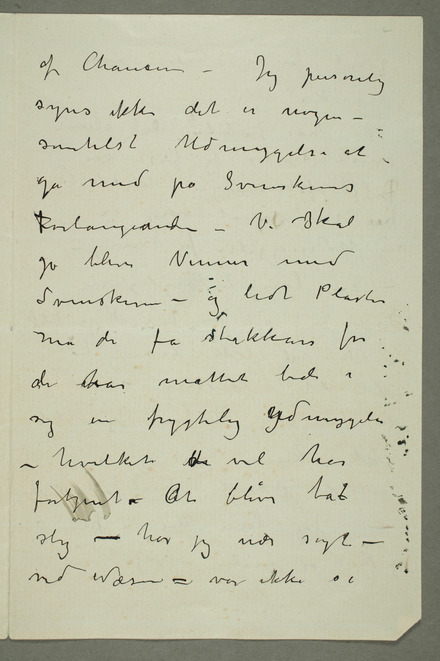 af Chancen – Jeg personlig
syns ikke det er nogen –
somhelst Udmygelse at
ga med på Svenskens
Forlangende – Vi skal
jo blive Venner med
Svensken – og lidt Plaster
må de få stakkars for
de har måttet lide i
sig en frygtelig Ydmygelse
– hvilket de vel har
fortjent – At blive kat
slig – har jeg nær sagt –
ved Næsen – var ikke så